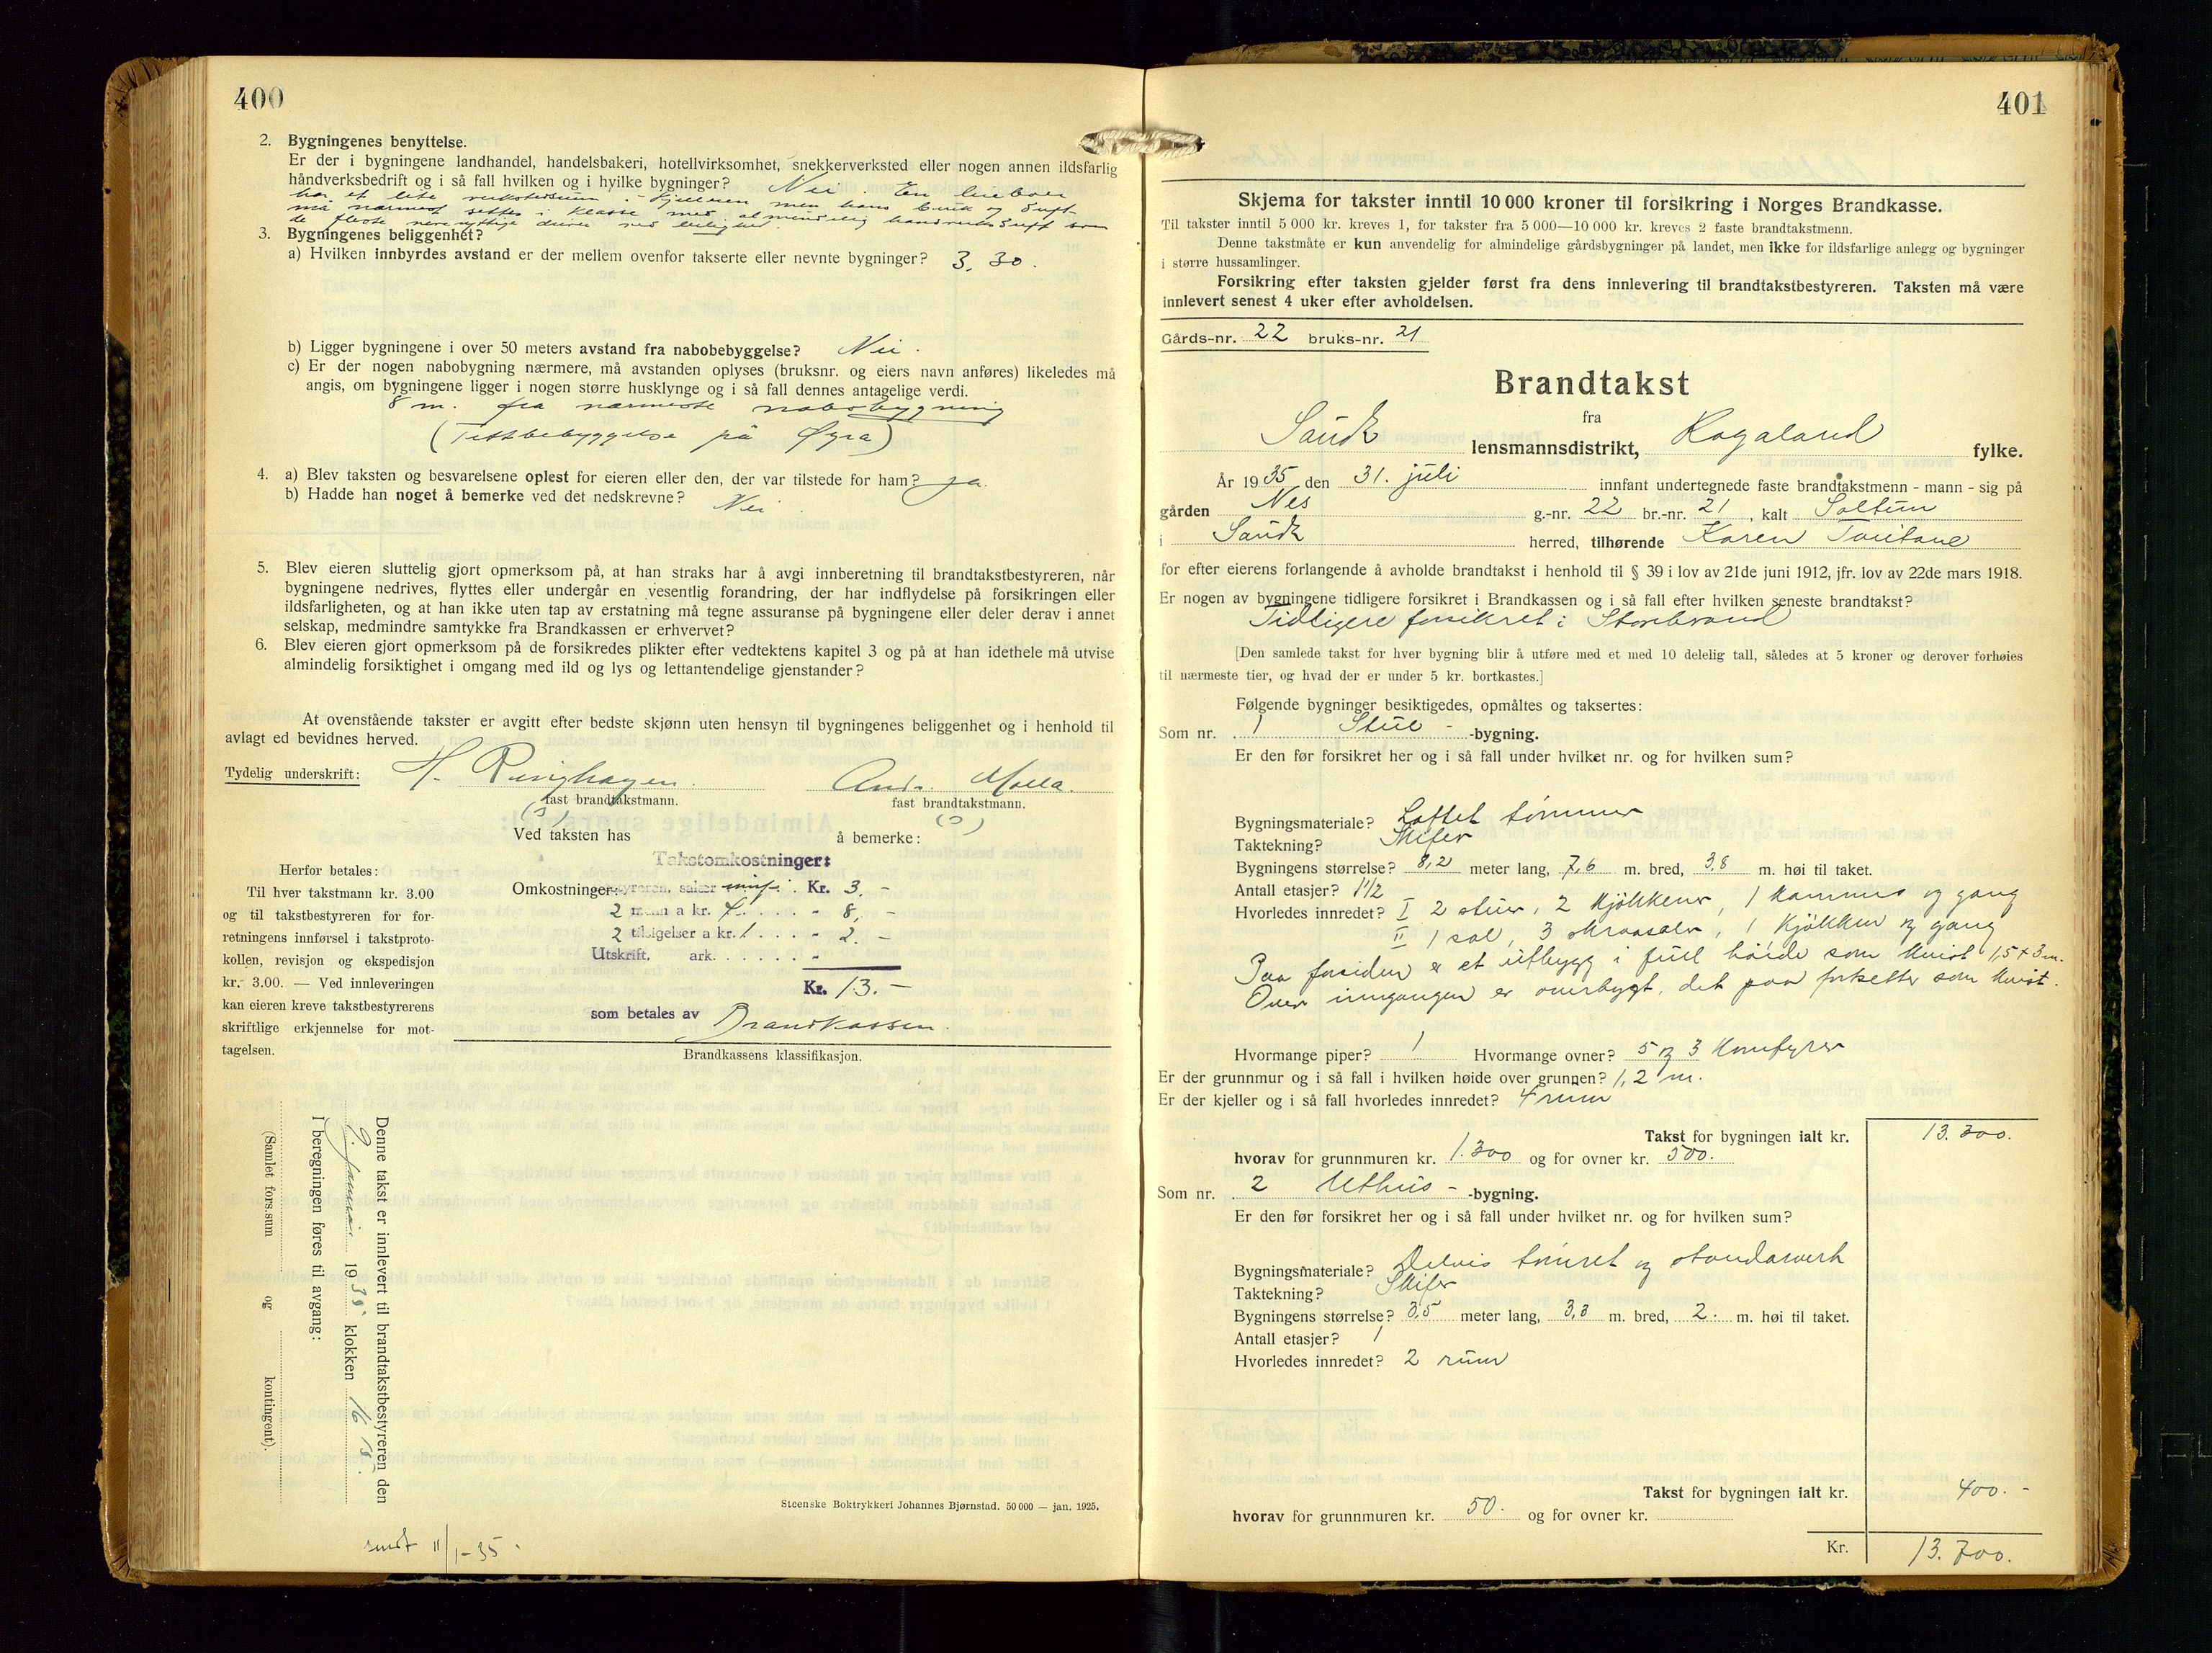 400
2. Bygningenes benyttelse.
Er der i bygningene landhandel, handelsbakeri, hotellvirksomhet, snekkerverksted eller nogen annen ildsfarlig
håndverksbedrift og i så fall hvilken og i hvilke bygninger? Nei. En leieboer
har et lite verkstedsrum i kjelleren men hans bruk og drift
må nærmest settes i klasse med almindelig
de fleste
3. Bygningenes beliggenhet?
a) Hvilken innbyrdes avstand er der mellem ovenfor takserte eller nevnte bygninger? 3,30.
b) Ligger bygningene i over 50 meters avstand fra nabobebyggelse? Nei.
c) Er der nogen nabobygning nærmere, må avstanden oplyses (bruksnr. og eiers navn anføres) likeledes må
angis, om bygningene ligger i nogen større husklynge og i så fall dennes antagelige verdi.
8 m. fra nærmeste nabobygning
(Tettbebyggelse på Øyra)
4. a) Blev taksten og besvarelsene oplest for eieren eller den, der var tilstede for ham? Ja.
b) Hadde han noget å bemerke ved det nedskrevne? Nei.
5. Blev eieren sluttelig gjort opmerksom på, at han straks har å avgi innberetning til brandtakstbestyreren, når
bygningene nedrives, flyttes eller undergår en vesentlig forandring, der har indflydelse på forsikringen eller
ildsfarligheten, og at han ikke uten tap av erstatning må tegne assuranse på bygningene eller deler derav i annet
selskap, medmindre samtykke fra Brandkassen er erhvervet?
6. Blev eieren gjort opmerksom på de forsikredes plikter efter vedtektens kapitel 3 og på at han idethele må utvise
almindelig forsiktighet i omgang med ild og lys og lettantendelige gjenstander?
At ovenstående takster er avgitt efter bedste skjønn uten hensyn til bygningenes beliggenhet og i henhold til
avlagt ed bevidnes herved.
Tydelig underskrift: H. Ringhagen. And. Molla.
fast brandtakstmann. fast brandtakstmann.
(s) (s)
Ved taksten has å bemerke:
Takstomkostninger:
Omkostninger: styreren, salær Kr. 3,-
2 menn a kr. 4 . . . . - 8,-
2 tilsigelser a kr. 1 . . . . - 2.-
Utskrift, ark. . . . . . -
Kr. 13.-
som betales av Brandkassen.
Brandkassens klassifikasjon.
Herfor betales:
Til hver takstmann kr. 3.00
og til takstbestyreren for for-
retningens innførsel i takstproto-
kollen, revisjon og ekspedisjon
kr. 3.00. — Ved innleveringen
kan eieren kreve takstbestyrerens
skriftlige erkjennelse for mot-
tagelsen.
Denne takst er innlevert til brandtakstbestyreren den
9 januar 1935 klokken 16 15.
I beregningen føres til avgang:
(Samlet fors.sum og kontingent).
Steenske Boktrykkeri Johannes Bjørnstad. 50 000 — jan. 1925.
sendt 11/1-35.
401
Skjema for takster inntil 10 000 kroner til forsikring i Norges Brandkasse.
Til takster inntil 5 000 kr. kreves 1, for takster fra 5 000—10 000 kr. kreves 2 faste brandtakstmenn.
Denne takstmåte er kun anvendelig for almindelige gårdsbygninger på landet, men ikke for ildsfarlige anlegg og bygninger
i større hussamlinger.
Forsikring efter taksten gjelder først fra dens innlevering til brandtakstbestyreren. Taksten må være
innlevert senest 4 uker efter avholdelsen.
Gårds-nr. 22 bruks-nr. 21
Brandtakst
fra
Saude lensmannsdistrikt, Rogaland fylke.
År 1935 den 31. juli innfant undertegnede faste brandtakstmenn - mann - sig på
gården Nes g.-nr. 22 br.-nr. 21, kalt Soltun
i Saude herred, tilhørende Karen
for efter eierens forlangende å avholde brandtakst i henhold til § 39 i lov av 21de juni 1912, jfr. lov av 22de mars 1918.
Er nogen av bygningene tidligere forsikret i Brandkassen og i så fall efter hvilken seneste brandtakst?
Tidligere forsikret i Storebrand
[Den samlede takst for hver bygning blir å utføre med et med 10 delelig tall, således at 5 kroner og derover forhøies
til nærmeste tier, og hvad der er under 5 kr. bortkastes.]
Følgende bygninger besiktigedes, opmåltes og taksertes:
Som nr. 1 Stue - -bygning.
Er den før forsikret her og i så fall under hvilket nr. og for hvilken sum?
Bygningsmateriale? Laftet tømmer
Taktekning? Skifer
Bygningens størrelse? 8,2 meter lang, 7,6 m. bred, 3,8 m. høi til taket.
Antall etasjer? 1 1/2
Hvorledes innredet? I 2 stuer, 2 kjøkkener, 1 kammer og gang
II 1 sal, 3 skraasaler, 1 kjøkken og gang
Paa forsiden er et utbygg i full høide som kvist 1,5 x 3 m.
Over inngangen er overbygt, det paa fortsetter som kvist.
Hvormange piper? 1 Hvormange ovner? 5 og 3 komfyrer
Er der grunnmur og i så fall i hvilken høide over grunnen? 1,2 m.
Er der kjeller og i så fall hvorledes innredet? 4 rum
Takst for bygningen ialt kr. 13.300.
hvorav for grunnmuren kr. 1.300 og for ovner kr. 500.
Som nr. 2 Uthus - -bygning.
Er den før forsikret her og i så fall under hvilket nr. og for hvilken sum?
Bygningsmateriale? Delvis tømret og standarverk
Taktekning? Skifer
Bygningens størrelse? 3,5 meter lang, 3,3 m. bred, 2. m. høi til taket.
Antall etasjer? 1
Hvorledes innredet? 2 rum
Takst for bygningen ialt kr. 400.-
hvorav for grunnmuren kr. 50. og for ovner kr.
Kr. 13.700.